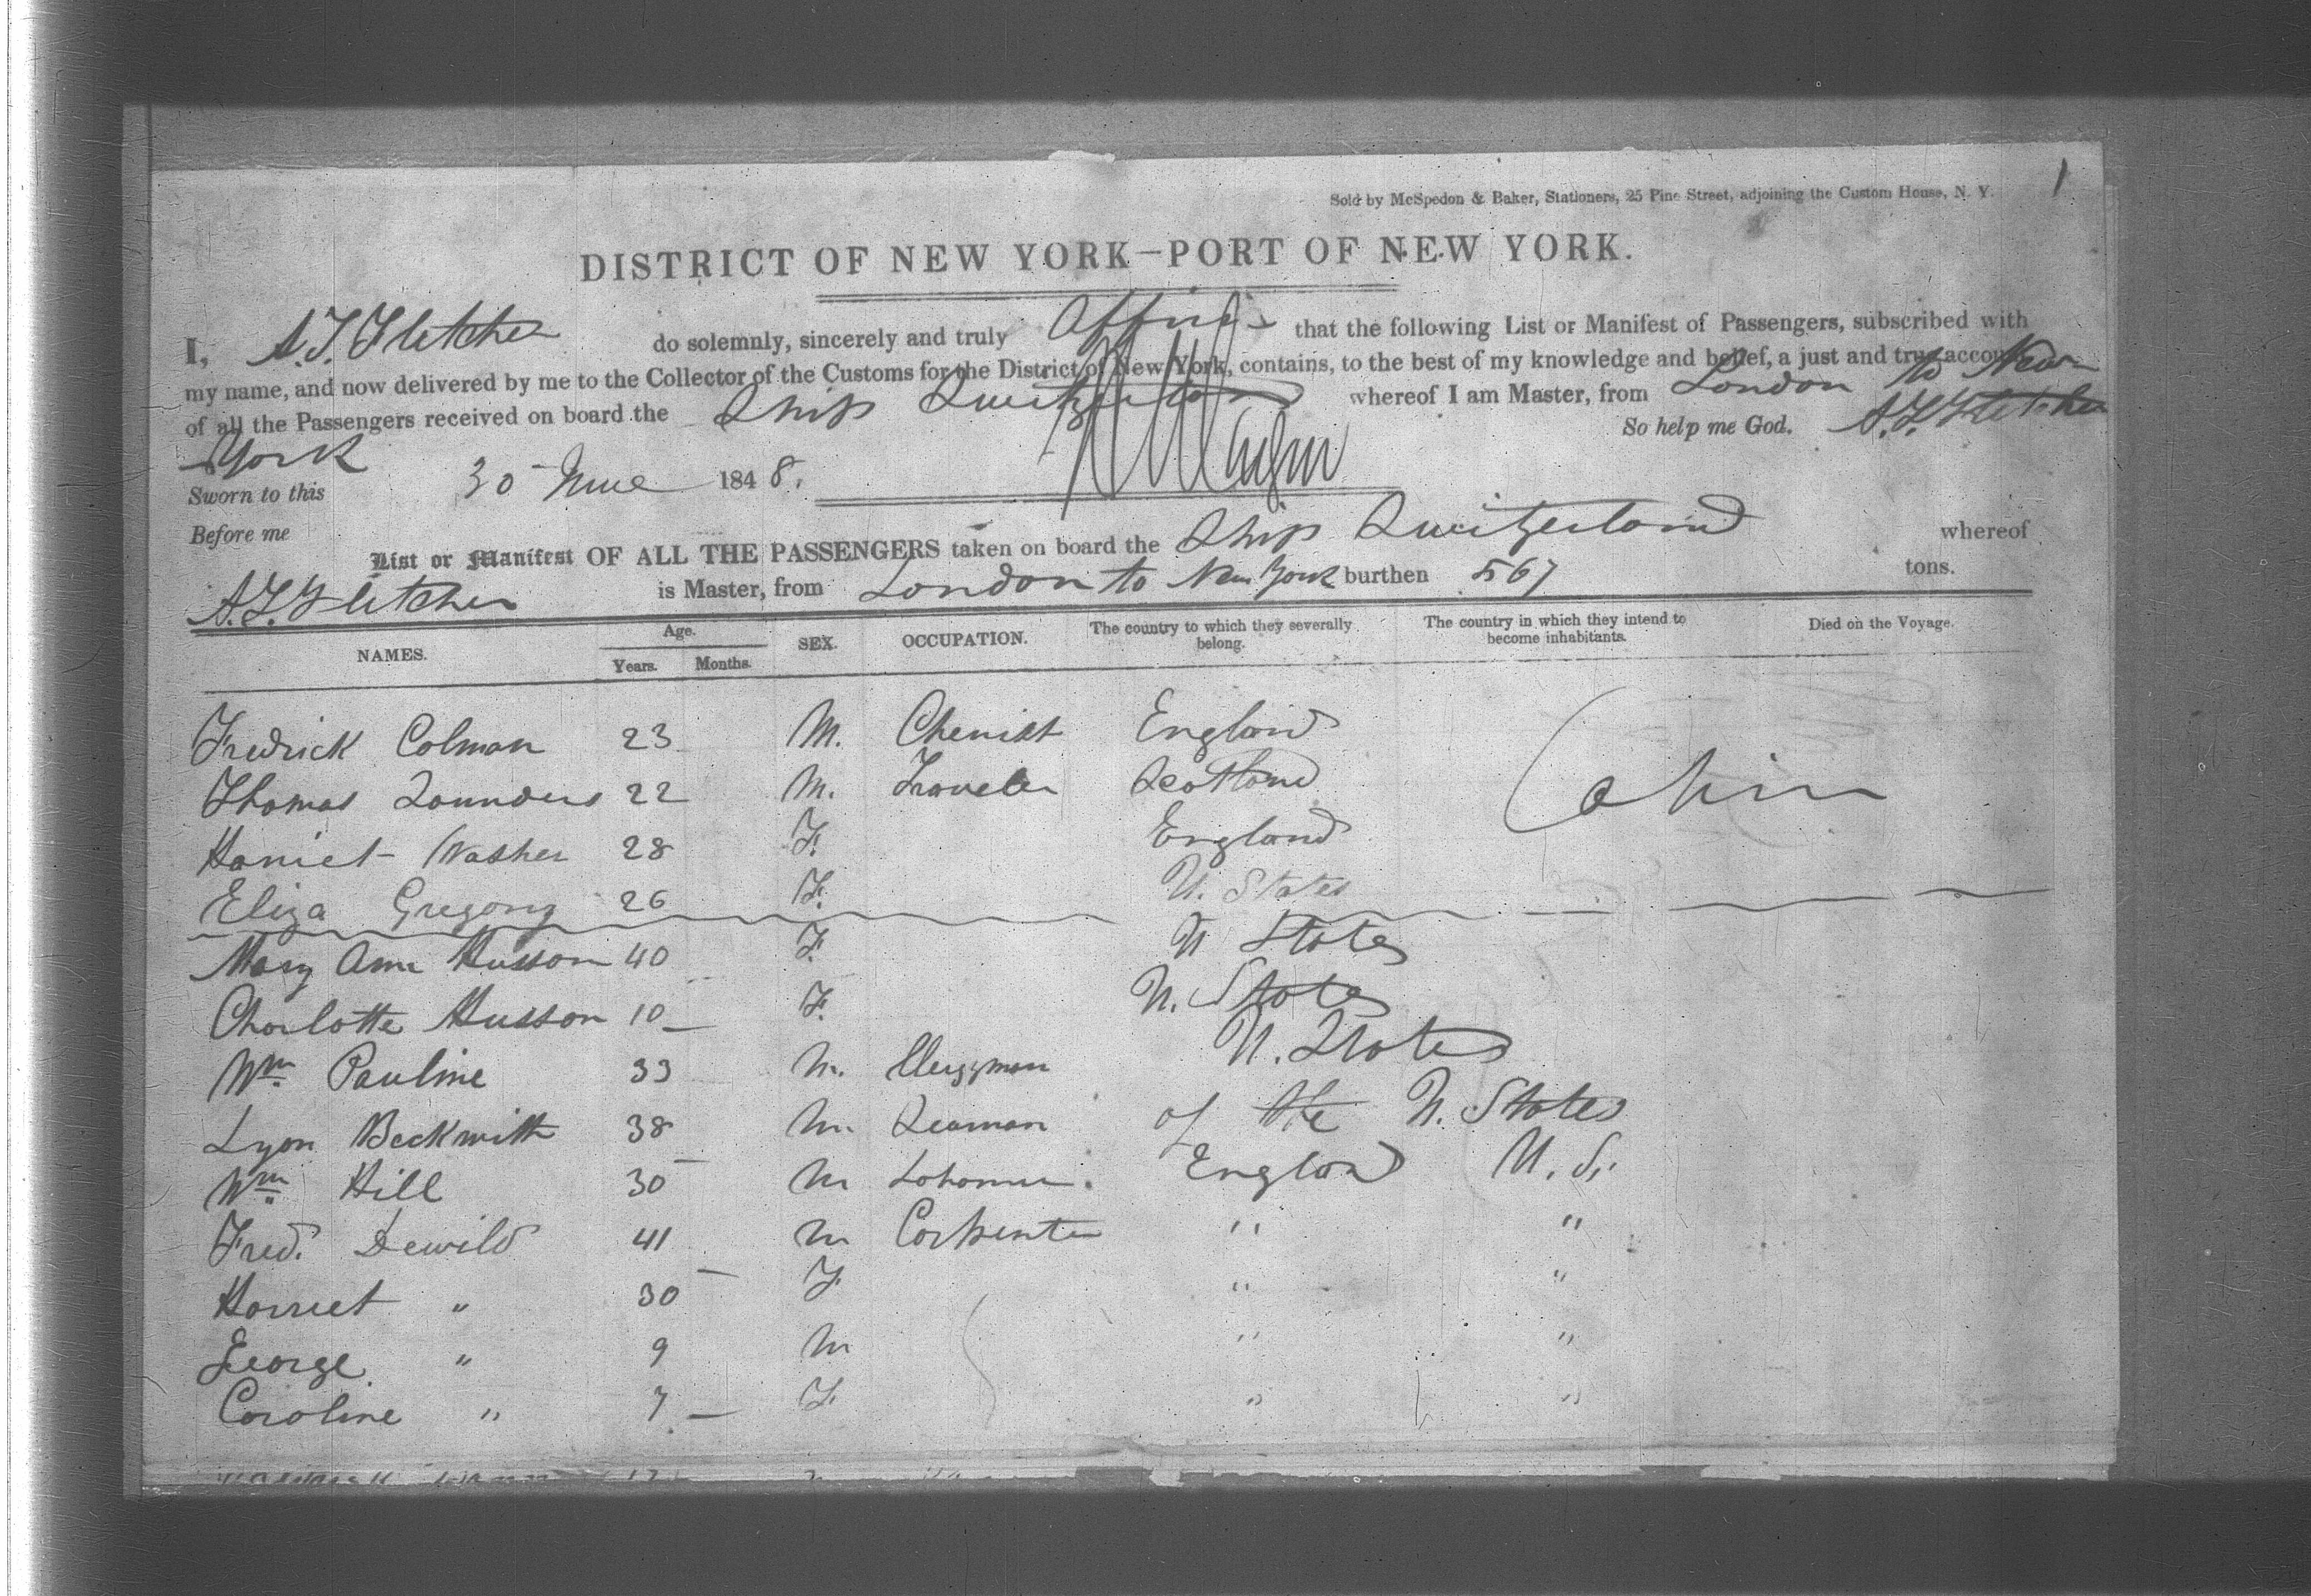 1
Sold by McSpedon & Baker, Stationers, 25 Pine Street, adjoining the Custom House, N. Y.
DISTRICT OF NEW YORK—PORT OF NEW YORK.
I, A.T. Fletcher do solemnly, sincerely and truly that the following List or Manifest of Passengers, subscribed with
my name, and now delivered by me to the Collector of the Customs for the District of New York, contains, to the best of my knowledge and belief, a just and true account
of all the Passengers received on board the Ship Switzerland whereof I am Master, from London to New
York So help me God. A.T. Fletcher
Sworn to this 30 June 1848.
Before me
List or Manifest OF ALL THE PASSENGERS taken on board the Ship Switzerland whereof
A.T. Fletcher is Master, from London to New York burthen 567 tons.
NAMES. Age. Years. Months. SEX. OCCUPATION. The country to which they severally belong. The country in which they intend to become inhabitants. Died on the Voyage.
Fredrick Colman 23 M. Chemist England
Thomas Saunders 22 M. Traveler Scotland
Harriet Washer 28 F. England
Eliza Gregory 26 F. U. States
Mary Ann Husson 40 F. U States
Charlotte Husson 10 F. U. States
Wm. Pauline 33 M. Clergyman U. States
Lyon Beckwith 38 M. Seaman of the U. States
Wm. Hill 30 M England U. S.
Fred. Dewild 41 M Carpenter " "
Harriet " 30 F " "
George " 9 M " "
Caroline " 7 F. " "